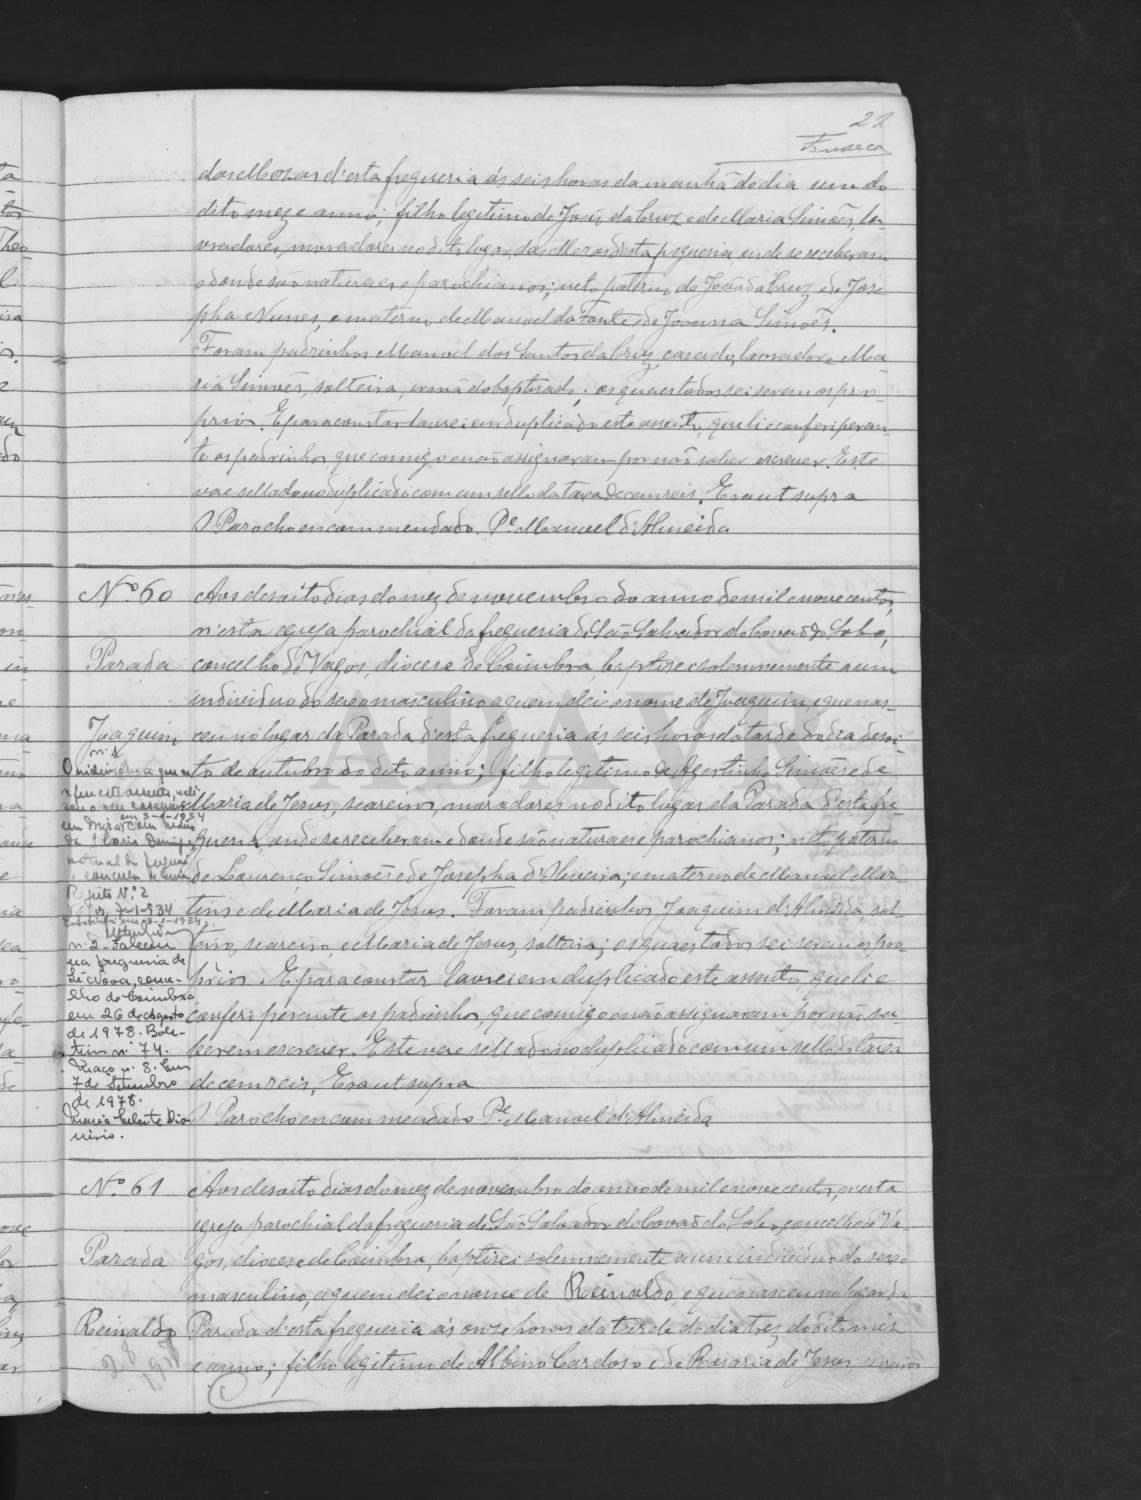 21
Fonseca
das Mozas d'esta freguesia ás seis horas da manhã do dia um do
dito mez e anno; filho legitimo de José da Cruz e de Maria Simões, la-
vradores, moradores no dito logar das Mozas d'esta freguesia onde se receberam
e donde são naturaes e parochianos; neto paterno de José da Cruz e de Jose-
pha Nunes, e materno de Manoel da Fonte e de Joanna Simões.
Foram padrinhos Manoel dos Santos da Cruz, casado, lavrador e Ma-
ria Simões, solteira, irmã do baptisado; os quaes todos sei serem os pro-
prios. E para constar lavrei em duplicado este assento, que li e conferi peran-
te os padrinhos que comigo não assignaram por não saber escrever. Este
vae sellado no duplicado com um sello da taxa de cem reis. Era ut supra
O Parocho encommendado. Pe. Manoel d'Almeida
Nº 60
Parada
Joaquim
Aos desoito dias do mez de novembro do anno de mil e nove centos,
n'esta egreja parochial da freguesia de São Salvador do Covão do Lobo,
concelho de Vagos, diocese de Coimbra, baptisei solemnemente a um
individuo do sexo masculino a quem dei o nome de Joaquim, e que nas-
ceu no logar da Parada d'esta freguesia ás seis horas da tarde do dia desoi-
to de outubro do dito anno; filho legitimo de Agostinho Simões e de
Maria de Jesus, seareiros, moradores no dito logar da Parada d'esta fre-
guesia, onde se receberam e donde são naturaes e parochianos; neto paterno
de Lourenço Simões e de Josepha d'Oliveira; e materno de Manoel Mar-
tins e de Maria de Jesus. Foram padrinhos Joaquim d'Almeida, sol-
teiro, seareiro, e Maria de Jesus, solteira; os quaes todos sei serem os pro-
prios. E para constar lavrei em duplicado este assento, que li e
conferi perante os padrinhos, que comigo não assignaram por não sa-
berem escrever. Este vae sellado no duplicado com um sello da taxa
de cem reis, Era ut supra
O Parocho encommendado Pe. Manoel d'Almeida
nº 1
O individuo a quem
em 3-1-1934
em Mira com
Maria
natural da freguesia
concelho
Nº 2
7-1-934
nº 2 - Faleceu
na freguesia de
Sé Nova, conce-
lho de Coimbra
em 26 de Agosto
de 1978. Bole-
tim nº 74.
Maço nº 8. Em
7 de Setembro
de 1978.
Maria Celeste Dio-
nisio.
Nº 61
Parada
Reinaldo
Aos desoito dias do mez de novembro do anno de mil e nove centos, n'esta
egreja parochial da freguesia de São Salvador do Covão do Lobo, concelho de Va-
gos, diocese de Coimbra, baptisei solemnemente a um individuo do sexo
masculino, a quem dei o nome de Reinaldo, e que nasceu no logar da
Parada d'esta freguesia ás onze horas da tarde do dia tres do dito mez
e anno; filho legitimo de Albino Cardoso e de Rosaria de Jesus, seareiros
ADAVR